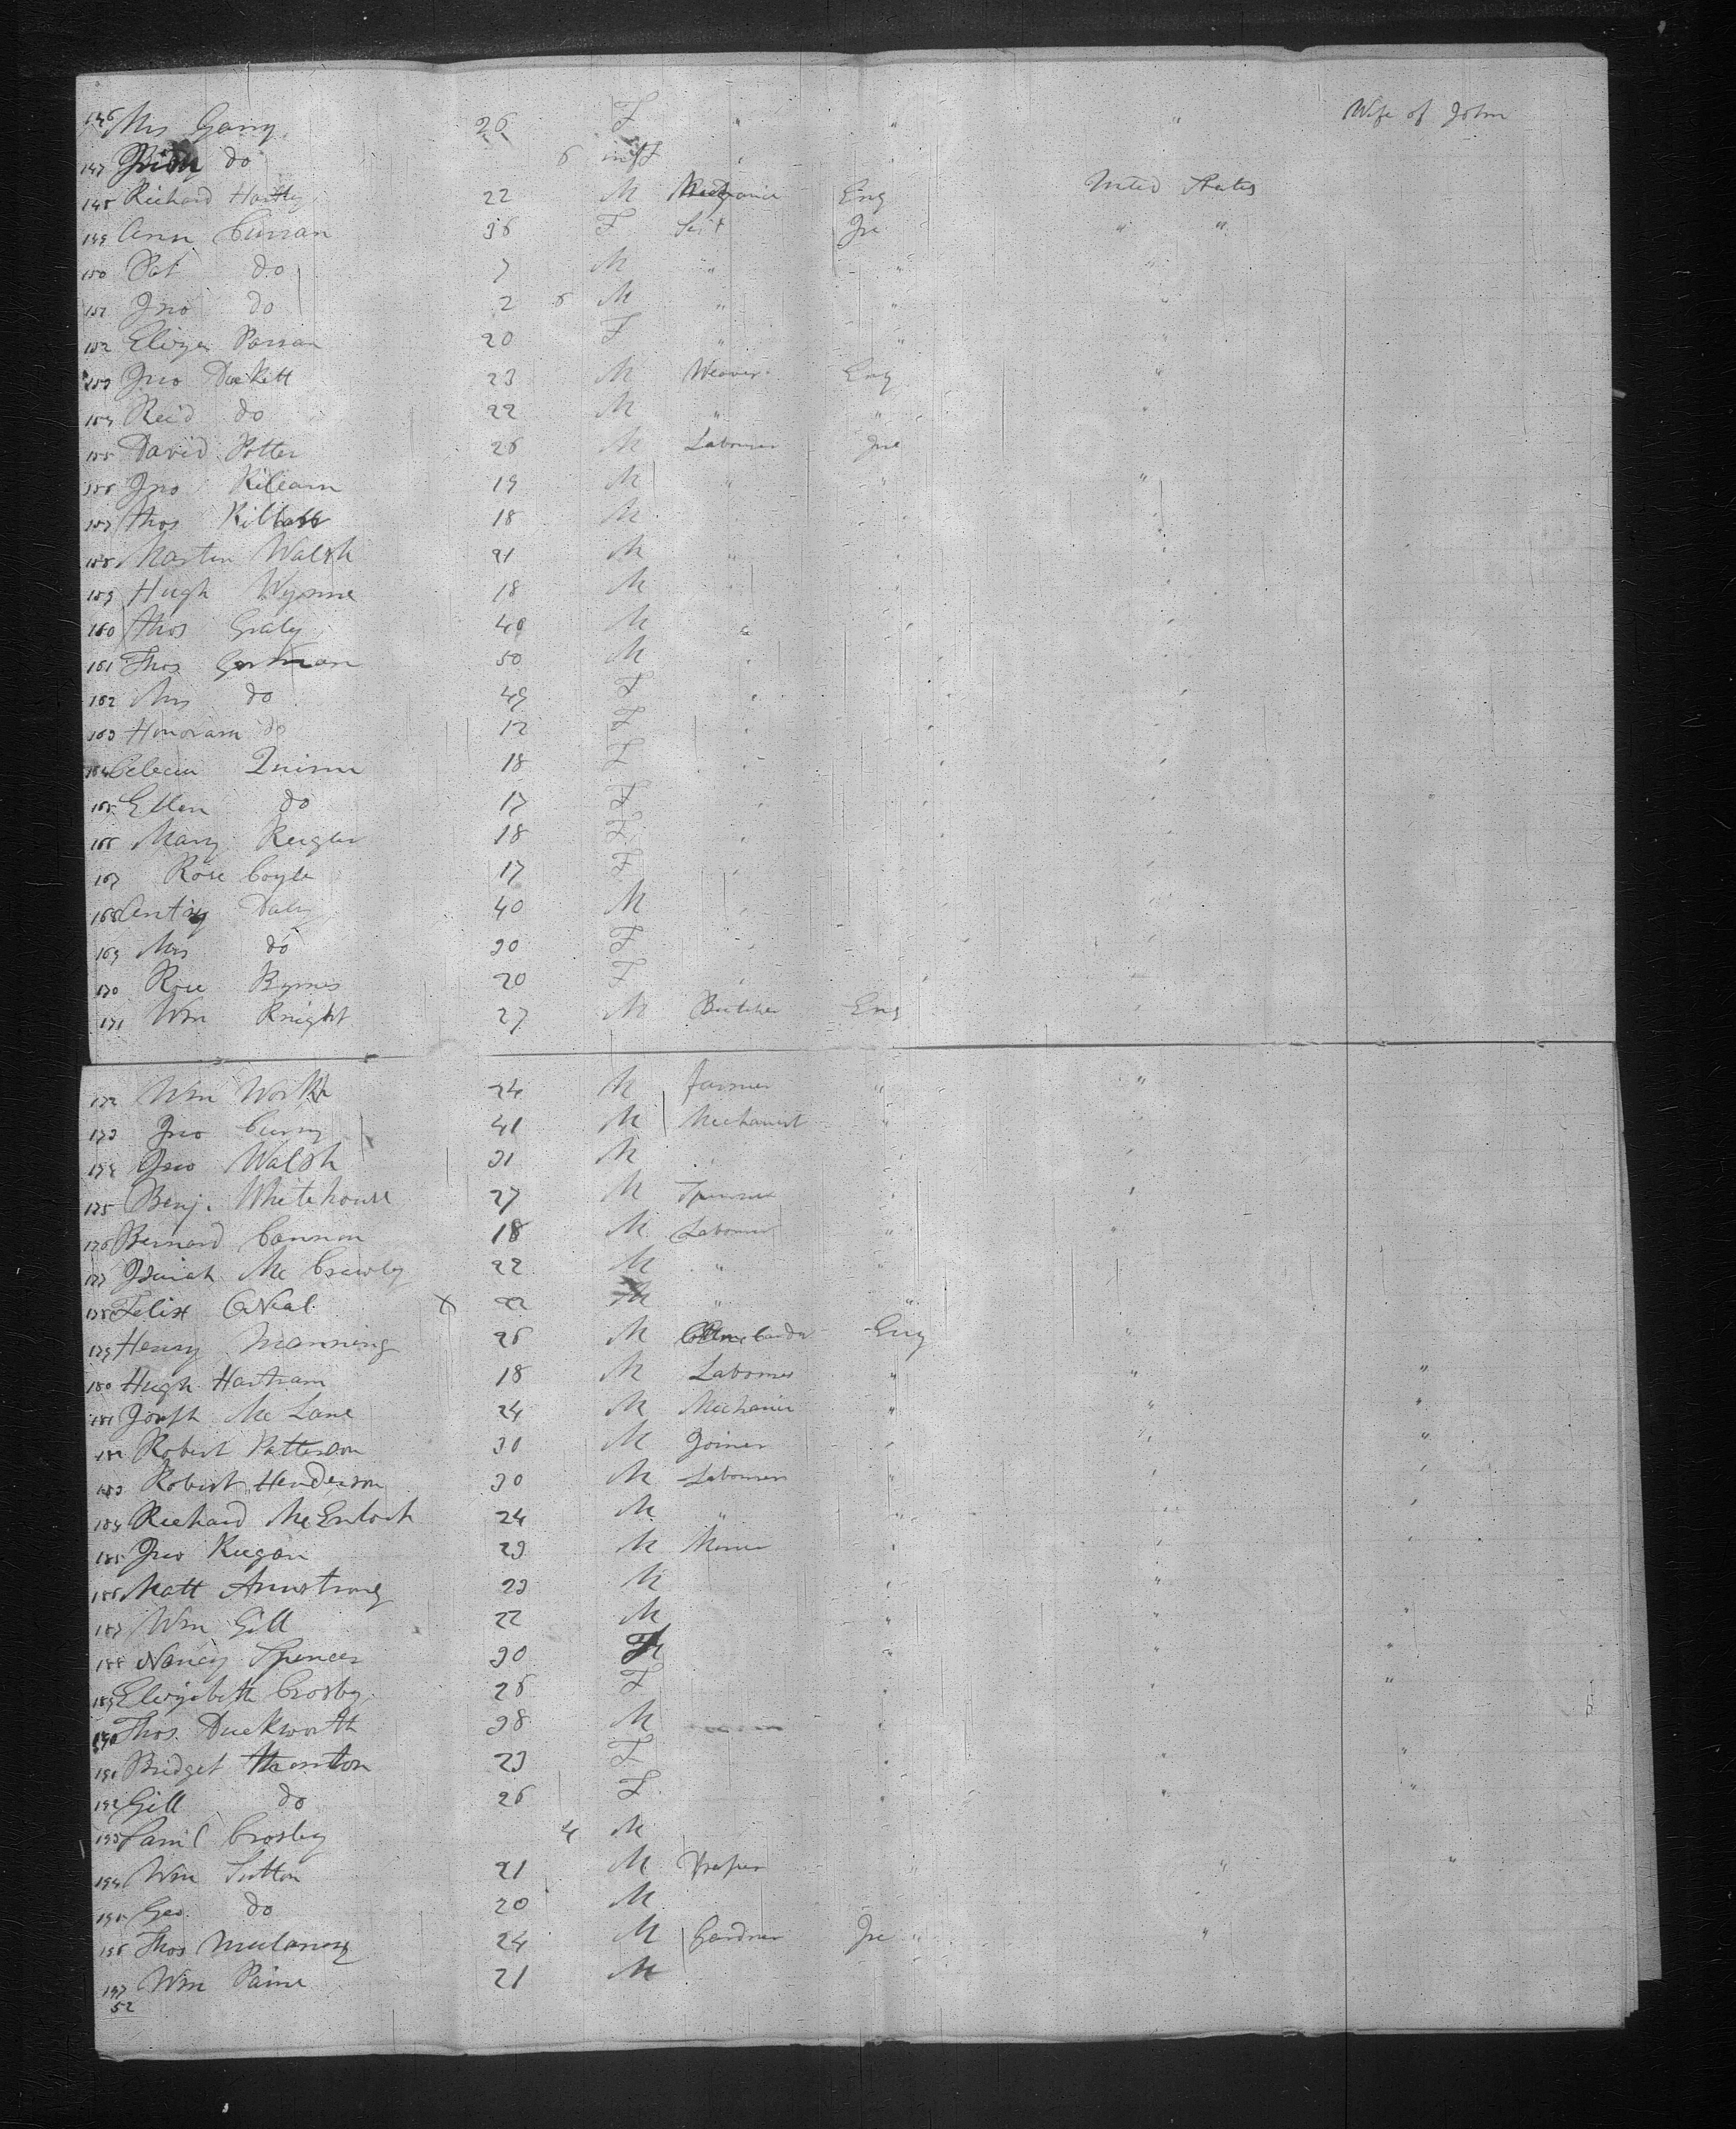 146 Mrs Garry 26 F " " " Wife of John
147 Bridy do 6 inf F " "
148 Richard Hartly 22 M Mechanic Eng United States
149 Ann Curran 36 F Sert Ire " "
150 Pat do 7 M " " "
151 Jno do 2 6 M " " "
152 Eliza Parran 20 F " " "
153 Jno Duckett 23 M Weaver Eng "
154 Reid do 22 M " " "
155 David Potter 26 M Labourer Ire
156 Jno Kilcarn 19 M " " "
157 Thos 18 M " "
158 Martin Walsh 21 M " " "
159 Hugh Wynne 18 M " " "
160 Thos Graly 40 M " " "
161 Thos Gorman 50 M " " "
162 Mrs do 49 F " " "
163 Honoram do 12 F " " "
164 Celecia Quinn 18 F " " "
165 Ellen do 17 F " " "
166 Mary Kegler 18 F " " "
167 Rose Coyle 17 F " "
168 Antoy Daly 40 M "
169 Mrs do 30 F " " "
170 Rose Byrnes 20 F " "
171 Wm Knight 27 M Butcher Eng "
172 Wm Work 24 M Farmer " "
173 Jno Curry 41 M Mechanist " "
174 Jno Walsh 31 M " " "
175 Benj. Whitehouse 27 M Spinner " "
176 Bernard Cannon 18 M Labourer " "
177 Isaiah Mc Crawley 22 M " "
178 Felix O'Neal X 22 M " "
179 Henry Manning 26 M Carder Eng "
180 Hugh Hartram 18 M Labourer " " "
181 Joseph Mc Lane 24 M Mechanic " " "
182 Robert Patterson 30 M Joiner " " "
183 Robert Henderson 30 M Labourer " " "
184 Richard McEnloch 24 M " " " "
185 Jno Keegan 23 M Miner " " "
186 Matt Armstrong 23 M " "
187 Wm Gill 22 M " " "
188 Nancy Spencer 30 F " " "
189 Elizabeth Crosby 26 F " " "
190 Thos. Duckworth 38 M "
191 Bridget Thornton 23 F " " "
192 Gill do 26 F " " "
193 Saml Crosby 4 M
194 Wm Sutton 21 M Draper " " "
195 Geo. do 20 M
196 Thos Mulaney 24 M Gardner Ire " "
197 Wm Paine 21 M
52